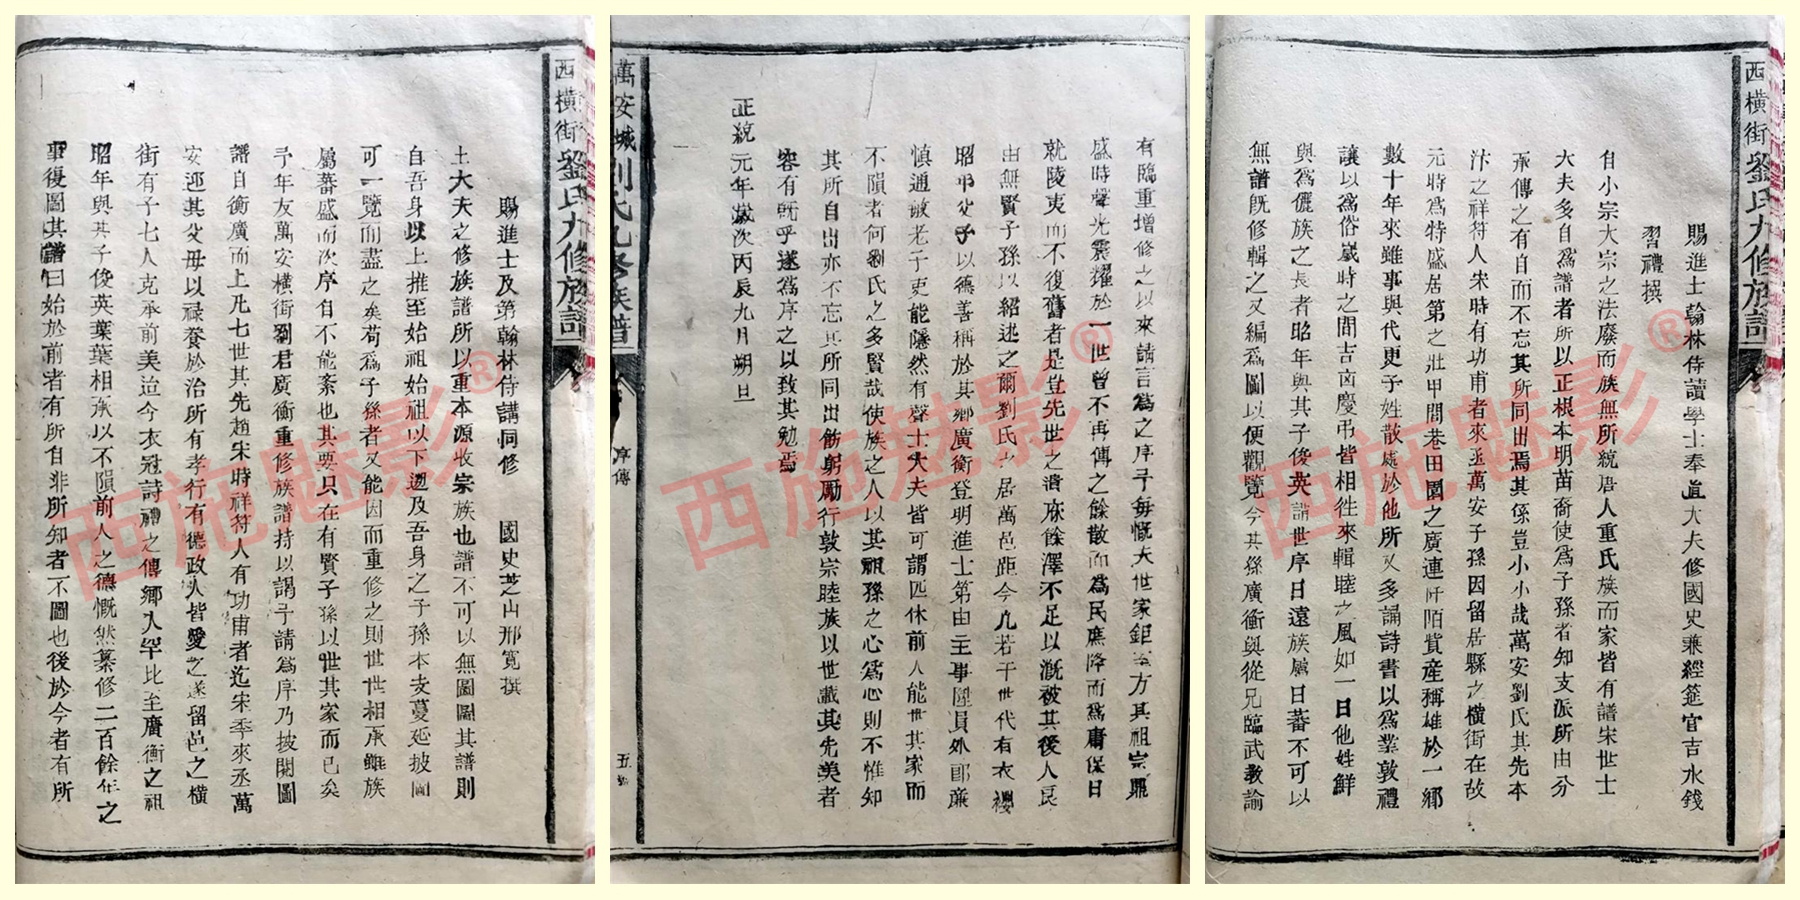 西橫街劉氏九修族譜
賜進士翰林侍讀學士奉直大夫修國史兼經筵官吉水錢
習禮撰
自小宗大宗之法廢而族無所統唐人重氏族而家皆有譜宋世士
大夫多自爲譜者所以正根本明苗裔使爲子孫者知支派所由分
承傳之有自而不忘其所同出焉其係豈小小哉萬安劉氏其先本
汴之祥符人宋時有功甫者來丞萬安子孫因留居縣之橫街在故
元時爲特盛居第之壯甲閭巷田園之廣連阡陌貲産稱雄於一鄉
數十年來雖事與代更子姓散處於他所又多誦詩書以爲業敦禮
讓以爲俗嵗時之間吉凶慶弔皆相徃來輯睦之風如一日他姓鮮
與爲儷族之長者昭年與其子俊英請世序日遠族屬日蕃不可以
無譜旣修輯之又編爲圖以便觀覽今其孫廣衡與從兄臨武教諭
萬安城劉氏九修族譜
序傳
五
有臨重增修之以來請言爲之序予毎慨夫世家鉅方其祖宗鼎
盛時聲光震耀於一世曾不再傳之餘散而爲民庶降而爲庸保日
就陵夷而不復舊者是豈先世之潰庥餘澤不足以漑被其後人民
由無賢子孫以紹述之爾劉氏之居萬邑距今凢若干世代有衣纓
昭弔父子以德善稱於其鄉廣衡登明進士第由主事陞員外郎廉
慎通敏老于吏能隱然有聲士大夫皆可謂匹休前人能世其家而
不隕者何劉氏之多賢哉使族之人以其祖孫之心爲心則不惟知
其所自出亦不忘其所同出飭躬勵行敦宗睦族以世載其先美者
容有旣乎遂爲序之以致其勉焉
正統元年嵗次丙辰九月朔旦
西橫街劉氏九修族譜
賜進士及第翰林侍講同修 國史芝山邢寬撰
士大夫之修族譜所以重本源收宗族也譜不可以無圖圖其譜則
自吾身以上推至始祖始祖以下逮及吾身之子孫本支蔓延披圖
可一覽而盡之矣苟爲子孫者又能因而重修之則世世相承雖族
屬蕃盛而次序自不能紊也其要只在有賢子孫以世其家而已矣
予年友萬安橫街劉君廣衡重修族譜持以謁予請爲序乃披閱圖
譜自衡廣而上凡七世其先趙宋時祥符人有功甫者迄宋季來丞萬
安迎其父母以祿養於治所有孝行有德政人皆愛之遂留邑之橫
街有子七人克承前美迨今衣冠詩禮之傳鄉人罕比至廣衡之祖
昭年與其子俊英葉葉相承以不隕前人之德慨然纂修二百餘年之
事復圖其譜曰始於前者有所自非所知者不圖也後於今者有所
西施魅影®
西施魅影®
西施魅影®